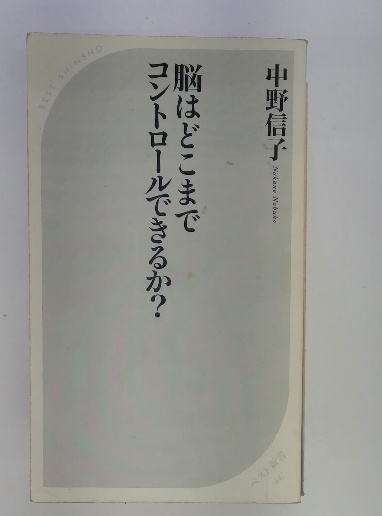 BEST SHINSHO
中野信子
Nakano Nobuko
脳はどこまで
コントロールできるか?